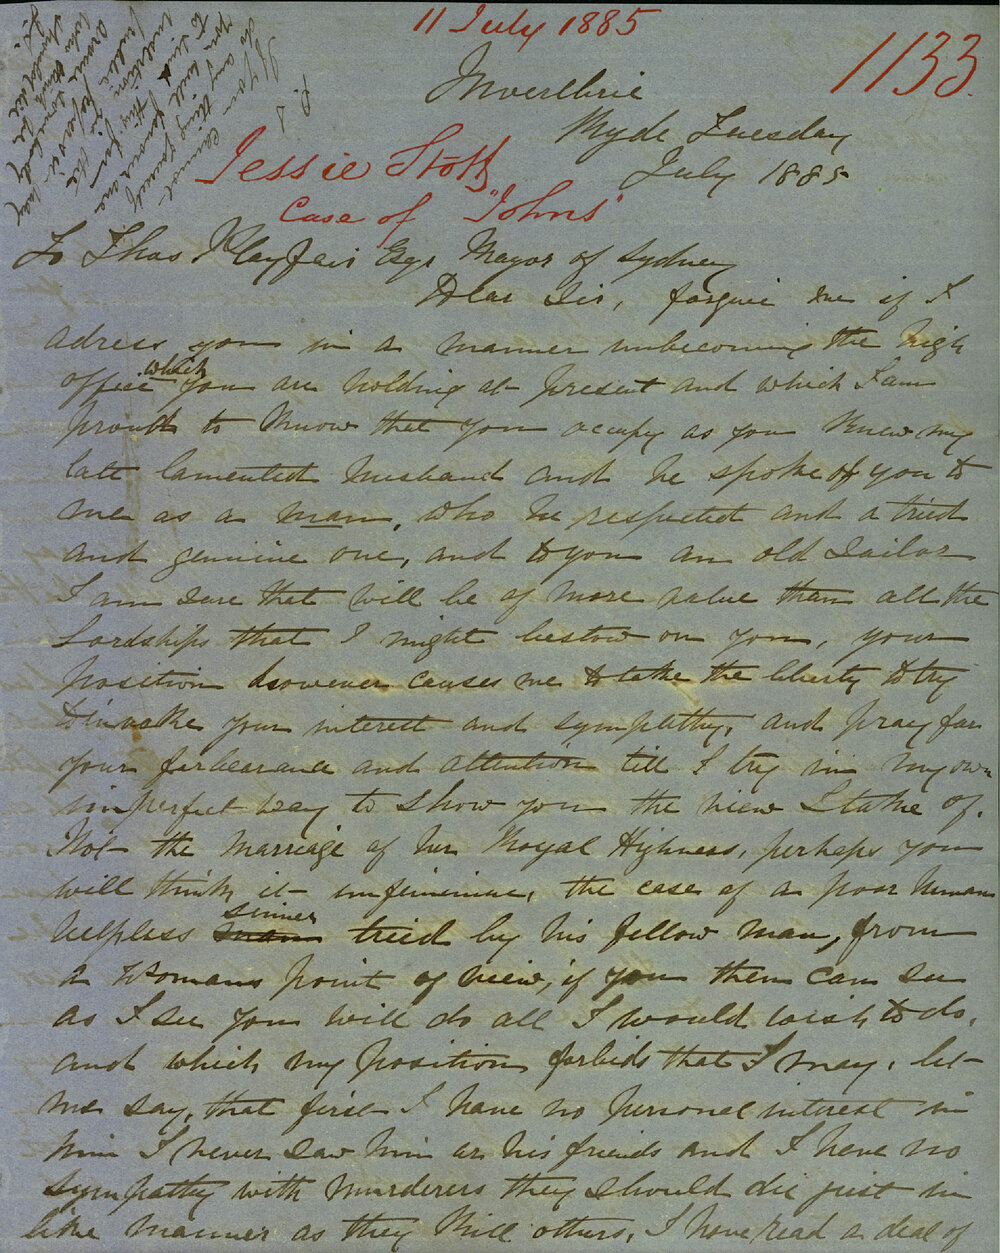 11 July 1885
1133.
Inverthrie
Ryde Tuesday
July 1885
Jessie Stott
Case of "Johns"
To Thos Playfair Esqr Mayor of Sydney
Dear Sir, forgive me if I
adress you in a manner unbecoming the high
office which you are holding at present and which I am
proud to know that you occupy as you knew my
late lamented husband and he spoke of you to
me as a man, who he respected and a tried
and genuine one, and to you an old Sailor
I am sure that will be of more value than all the
Lordships that I might bestow on you, your
position however causes me to take the liberty to try
to invoke your interest and sympathy, and pray for
your forbearance and attention till I try in my own
imperfect way to show you the view I take of.
Not the marriage of her Royal Highness, perhaps you
will think it unfeminine, the case of a poor human
helpless man sinner tried by his fellow man, from
a womans point of view, if you then can see
as I see you will do all I would wish to do,
and which my position forbids that I may, let
me say, that first I have no personal interest in
him I never saw him or his friends and I have no
sympathy with murderers they should die just in
like manner as they kill others, I have read a deal of
P.S
If you cannot
do any thing yourself
you will
to send this